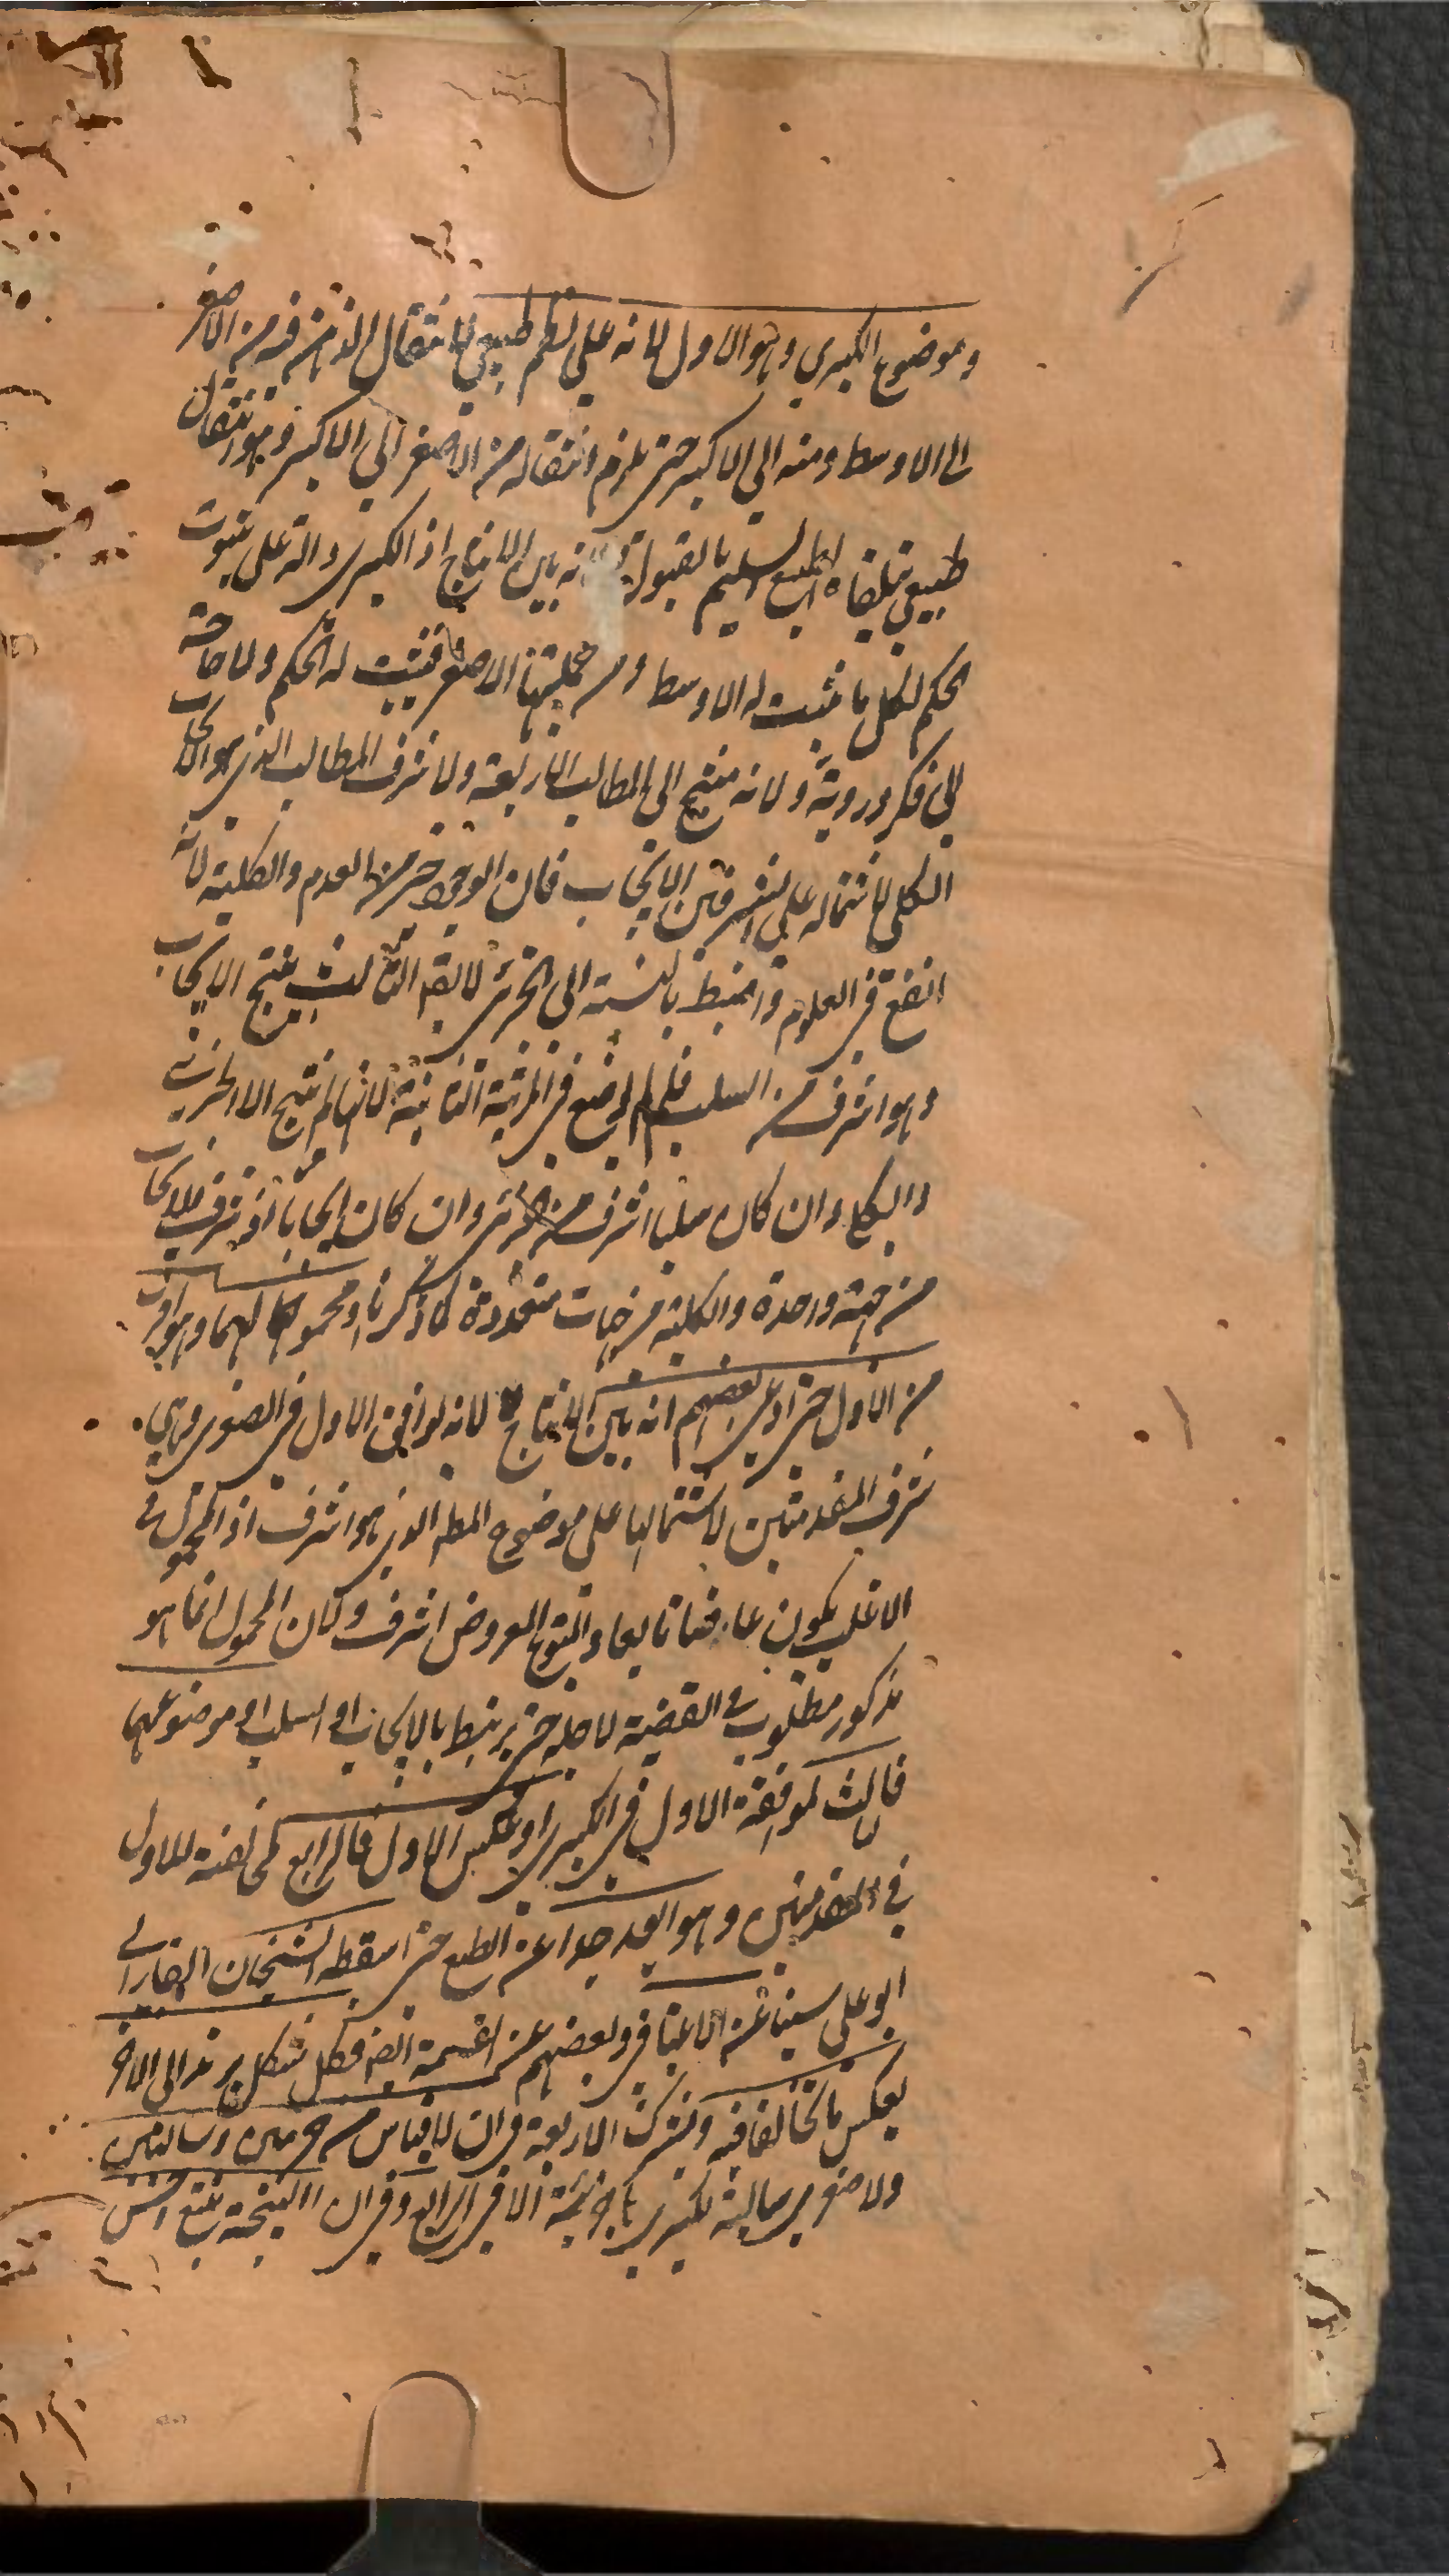 وموضوع الكبرى وهو الاول لانه على نظم طبيعي لانتقال الذهن فيه من الاصغر
الى الاوسط ومنه الى الاكبر حتى يلزم انتقاله من الاصغر الى الاكبر وهو انتقال
طبيعي يتلقاه الطبع السليم بالقبول ولانه بين الانتاج اذ الكبرى دالة على ثبوت
الحكم لكل ما ثبت له الاوسط ومن جملتها الاصغر فيثبت له الحكم ولا حاجة
الى فكر وروية ولانه منتج الى المطالب الاربعة ولاشرف المطالب الذي هو الايجاب
الكلي لاشتماله على الشرفين الايجاب فان الوجود خير من العدم والكلية لانه
انفع في العلوم واضبط بالنسبة الى الجزئي لا يقال الثالث ينتج الايجاب
وهو اشرف من السلب فلم لم يوضع في المرتبة الثانية لانها لم ينتج الا الجزئي
والكلي وان كان سلبا اشرف من الجزئي وان كان ايجابا اذ شرف الايجاب
من جهة واحدة والكلية من جهات متعددة كما ذكرنا او محمولا لهما وهو اقرب
من الاول حتى ادعى بعضهم انه بين الانتاج لانه يوافق الاول في الصغرى وهي
شرف المقدمتين لاشتمالها على موضوع المط الذي هو اشرف اذ المحمول في
الاغلب يكون عارضا تابعا والمتبوع المعروض اشرف وكان المحمول انما هو
مذكور مطلوب في القضية لاجله حتى يرتبط بالايجاب او السلب او موضوعهما
فالثالث لموافقة الاول في الكبرى او عكس الاول فالرابع لمخالفته للاول
في المقدمتين وهو ابعد جدا عن الطبع حتى اسقطه الشيخان الفارابي
ابو علي سينا عن الاعتبار وبعضهم عن القسمة ايضا فكل شكل يرتد الى الاخر
بعكس ما تخالفا فيه وتشترك الاربعة في ان لا قياس من جزئيتين وسالبتين
ولا صغرى سالبة كبرى ها جزئية الا في الرابع وفي ان النتيجة يتبع اخس